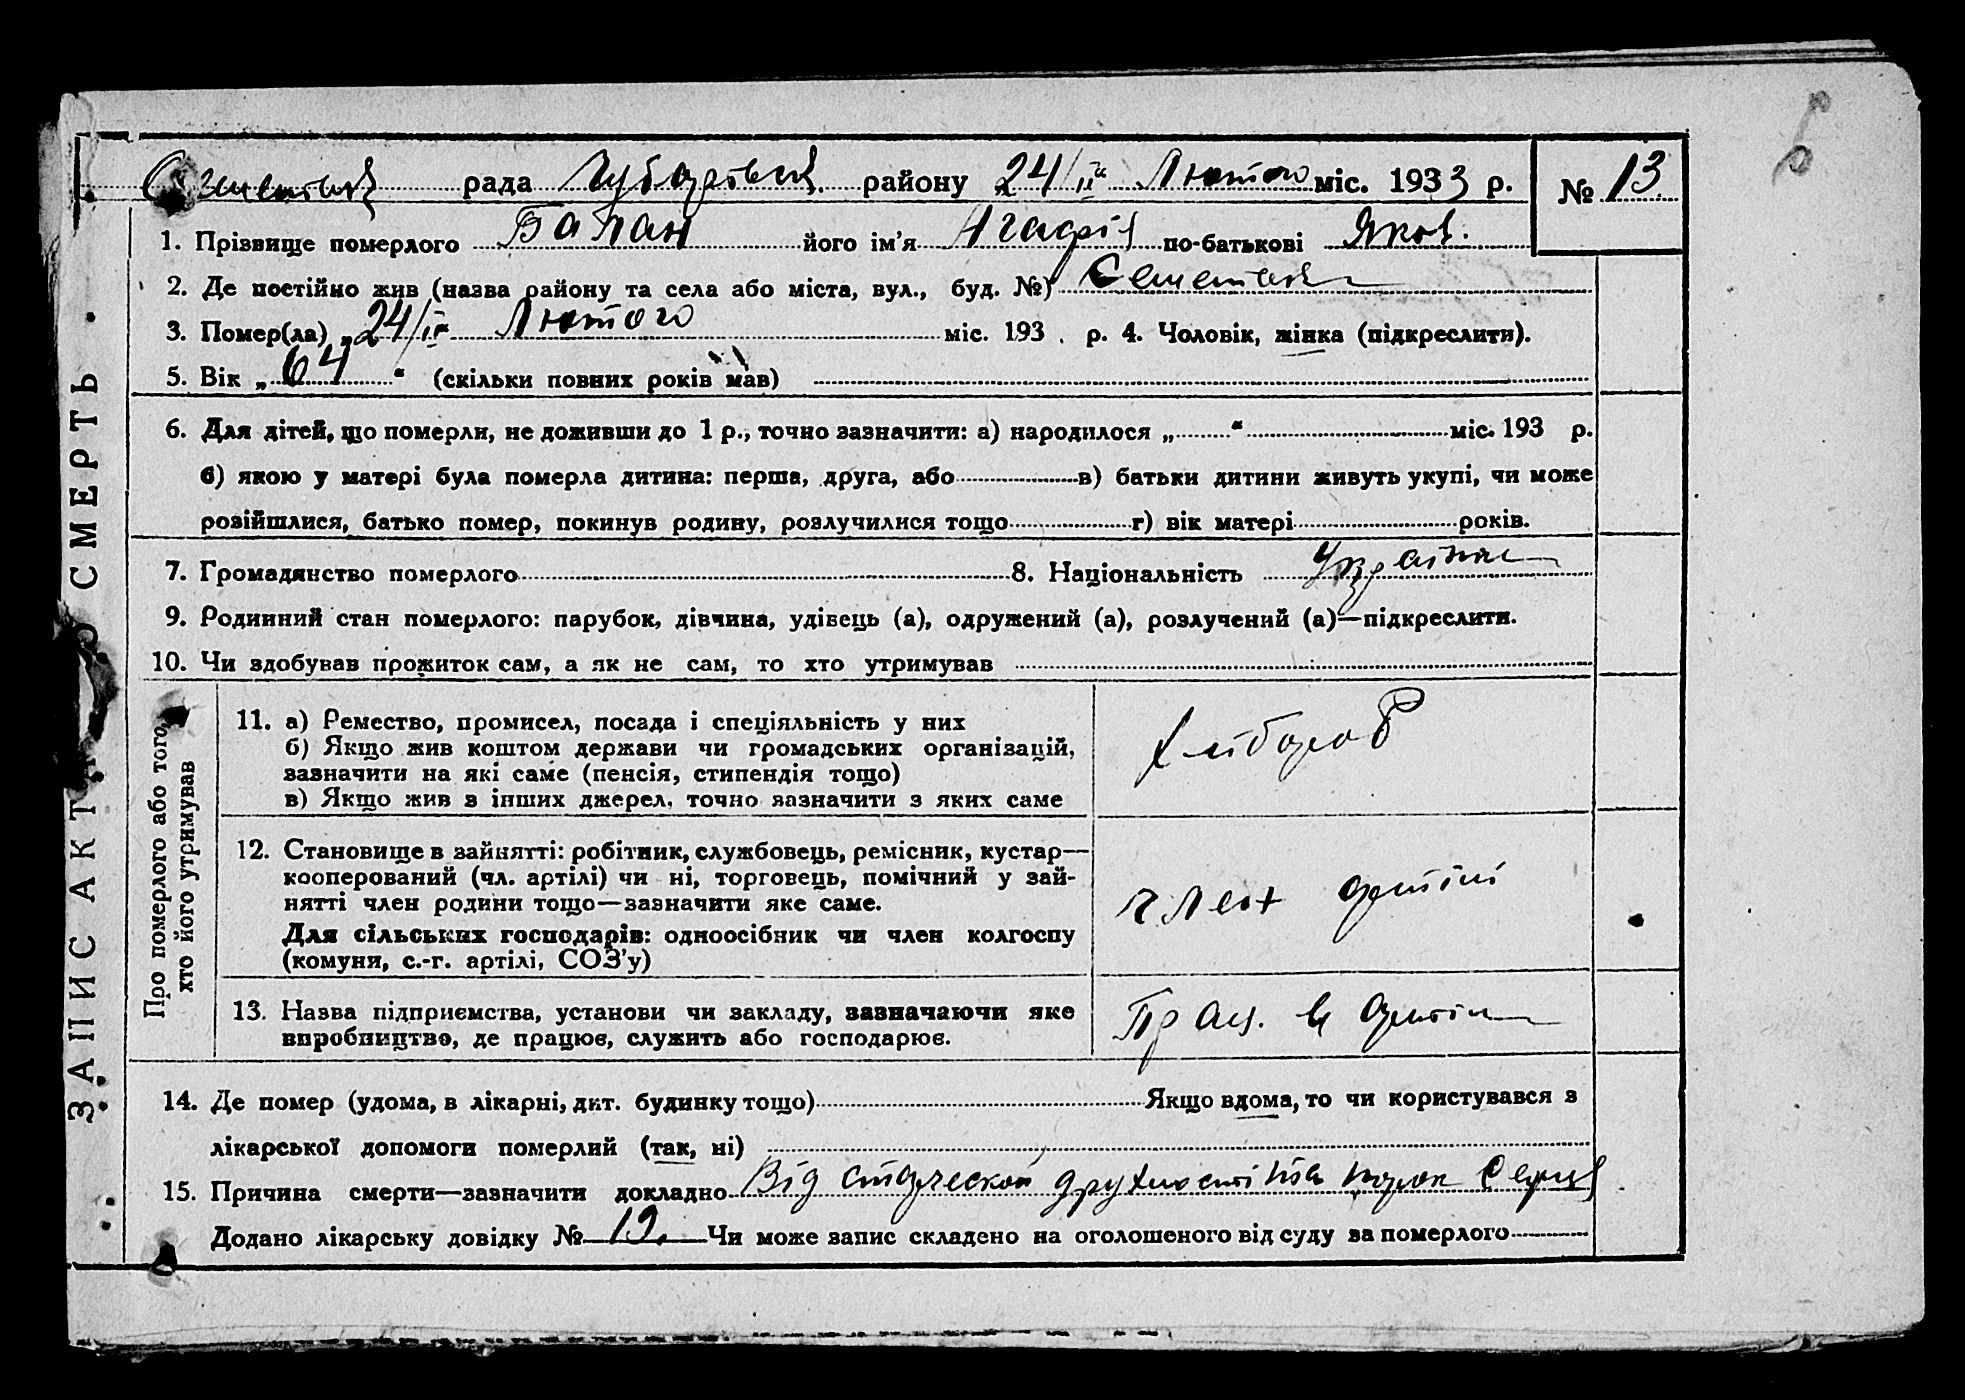 рада Чубарівськ. району 24/ІІ" Лютого міс. 1933 р. № 13
1. Прізвище померлого Балан його ім'я Агафія по-батькові Яков.
2. Де постійно жив (назва району та села або міста, вул., буд. №)
3. Помер(ла) „24/ІІ" Лютого міс. 193 . р. 4. Чоловік, жінка (підкреслити).
5. Вік „64" (скільки повних років мав)
6. Для дітей, що померли, не доживши до 1 р., точно зазначити: а) народилося „ " міс. 193 р.
б) якою у матері була померла дитина: перша, друга, або в) батьки дитини живуть укупі, чи може
розійшлися, батько помер, покинув родину, розлучилися тощо г) вік матері років.
7. Громадянство померлого 8. Національність Україн
9. Родинний стан померлого: парубок, дівчина, удівець (а), одружений (а), розлучений (а)—підкреслити.
10. Чи здобував прожиток сам, а як не сам, то хто утримував
ЗАПИС АКТ СМЕРТЬ.
Про померлого або того,
хто його утримував
11. а) Ремество, промисел, посада і спеціяльність у них
б) Якщо жив коштом держави чи громадських організацій,
зазначити на які саме (пенсія, стипендія тощо)
в) Якщо жив з інших джерел, точно зазначити з яких саме
Хлібороб
12. Становище в зайнятті: робітник, службовець, ремісник, кустар—
кооперований (чл. артілі) чи ні, торговець, помічний у зай-
нятті член родини тощо—зазначити яке саме.
Для сільських господарів: одноосібник чи член колгоспу
(комуни, с.-г. артілі, СОЗ'у)
член артілі
13. Назва підприємства, установи чи закладу, зазначаючи яке
виробництво, де працює, служить або господарює.
Прац. в артілі
14. Де помер (удома, в лікарні, дит. будинку тощо) Якщо вдома, то чи користувався з
лікарської допомоги померлий (так, ні)
15. Причина смерти—зазначити докладно Від старческой
Додано лікарську довідку № 19. Чи може запис складено на оголошеного від суду за померлого